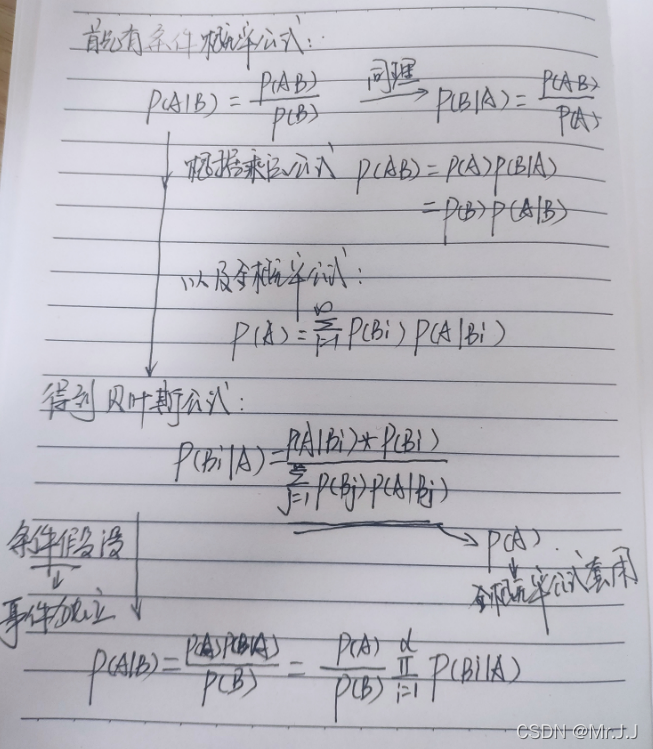 首先有条件概率公式:
P(A|B) = P(AB) / P(B) 同理 → P(B|A) = P(AB) / P(A)
根据乘法公式 P(AB) = P(A)P(B|A)
= P(B)P(A|B)
以及全概率公式:
P(A) = ∑ i=1 n P(Bi)P(A|Bi)
得到贝叶斯公式:
P(Bi|A) = P(A|Bi)*P(Bi) / ∑ j=1 n P(Bj)P(A|Bj)
→ P(A)
条件假设
全概率公式套用
事件独立
P(A|B) = P(A)P(B|A) / P(B) = P(A) / P(B) ∏ i=1 d P(Bi|A)
CSDN @Mr.J.J